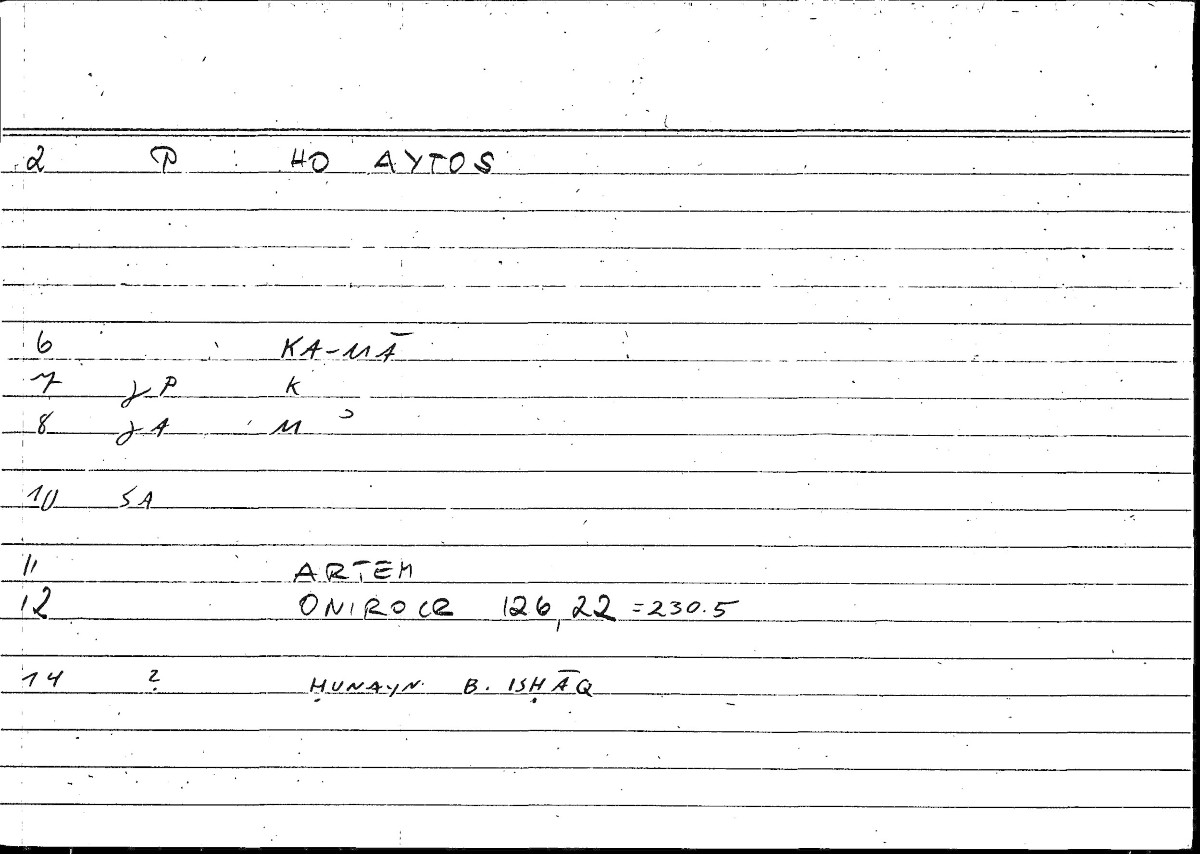 2 P : HO AYTOS
6 : KA-MĀ
7 γP K
8 γA : Mʾ
10 SA
11 ARTEM
12 ONIROCR 126,22 =230.5
14 ? ḤUNAYN. B. ISḤĀQ